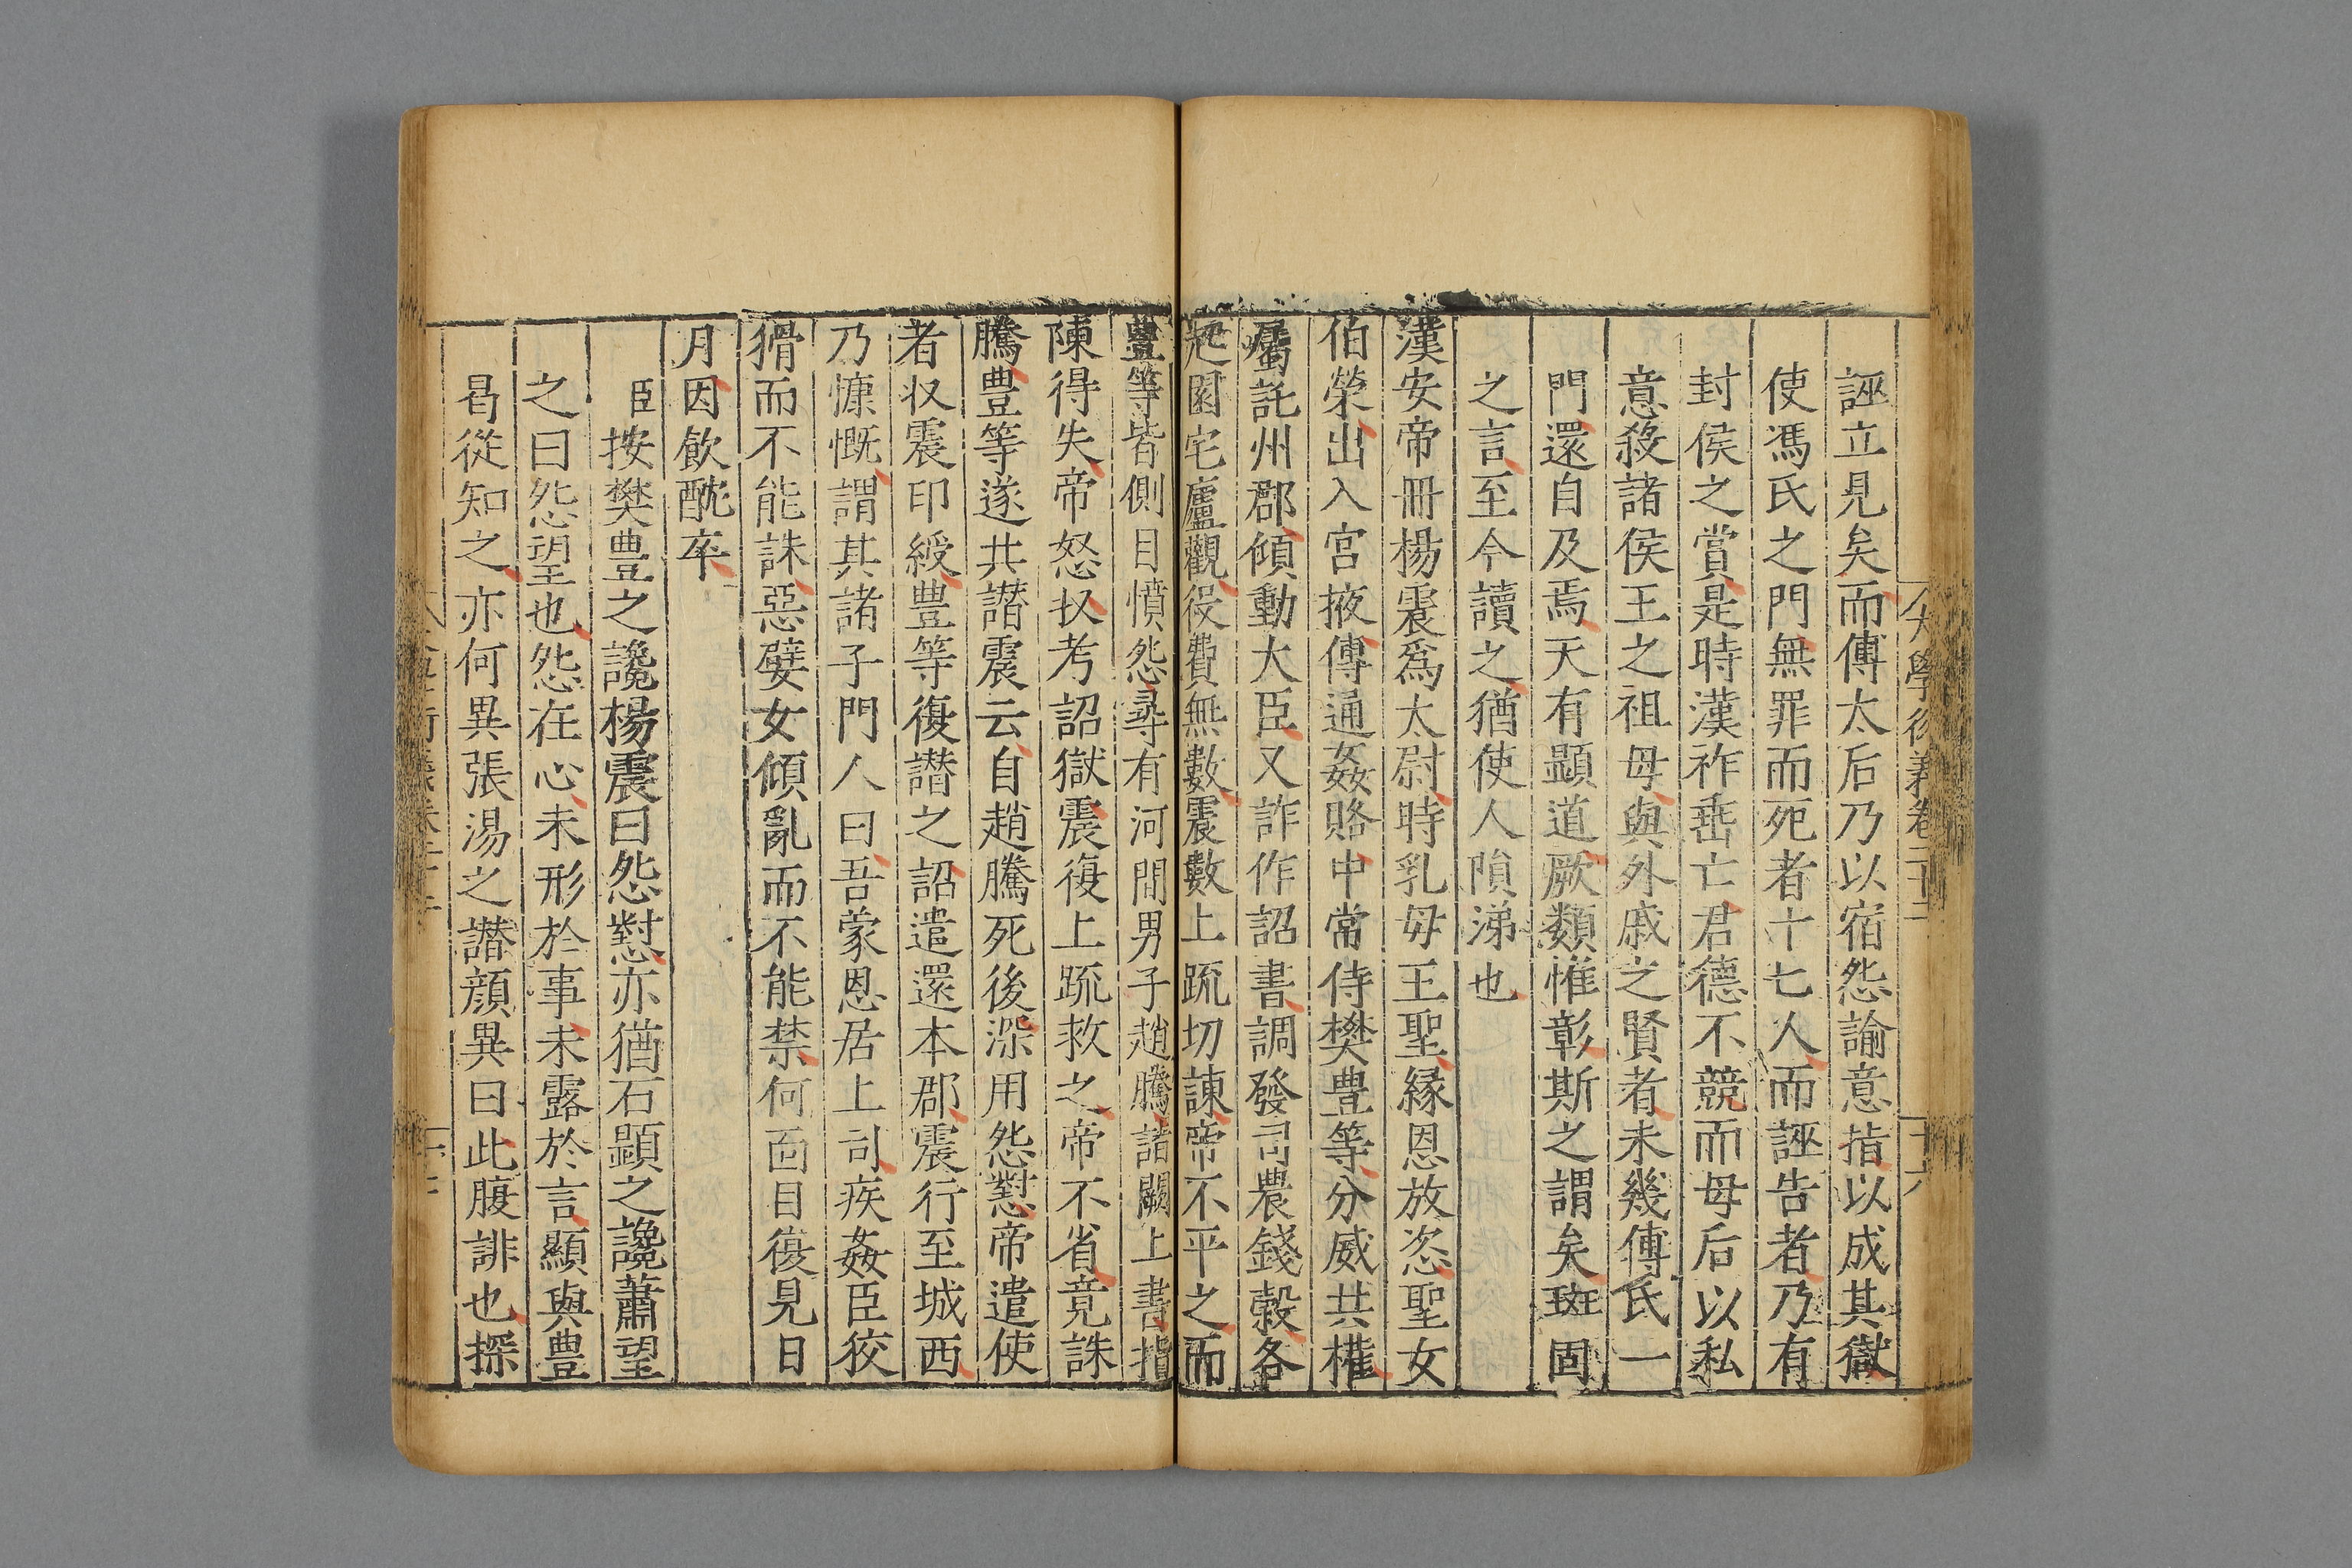 大學衍義卷二十二
十六
誣立見矣而傅太后乃以宿怨諭意指以成其獄
使馮氏之門無罪而死者十七人而誣告者乃有
封侯之賞是時漢祚垂亡君德不競而母后以私
意殺諸侯王之祖母與外戚之賢者未幾傅氏一
門還自及焉天有顯道厥類惟彰斯之謂矣班固
之言至今讀之猶使人隕涕也
漢安帝冊楊震爲太尉時乳母王聖縁恩放恣聖女
伯榮出入宮掖傳通姦賂中常侍樊豊等分威共權
屬託州郡傾動大臣又詐作詔書調發司農錢榖各
起園宅廬觀役費無數震數上疏切諫帝不平之而
豊等皆側目憤怨尋有河間男子趙騰詣闕上書指
陳得失帝怒收考詔獄震復上疏救之帝不省竟誅
騰豊等遂共譖震云自趙騰死後深用怨懟帝遣使
者収震印綬豊等復譖之詔遣還本郡震行至城西
乃慷慨謂其諸子門人曰吾蒙恩居上司疾姦臣狡
猾而不能誅惡嬖女傾亂而不能禁何面目復見日
月因飲酖卒
臣按樊豊之讒楊震曰怨懟亦猶石顯之讒蕭望
之曰怨望也怨在心未形於事未露於言顯與豊
曷從知之亦何異張湯之譖顔異曰此腹誹也探